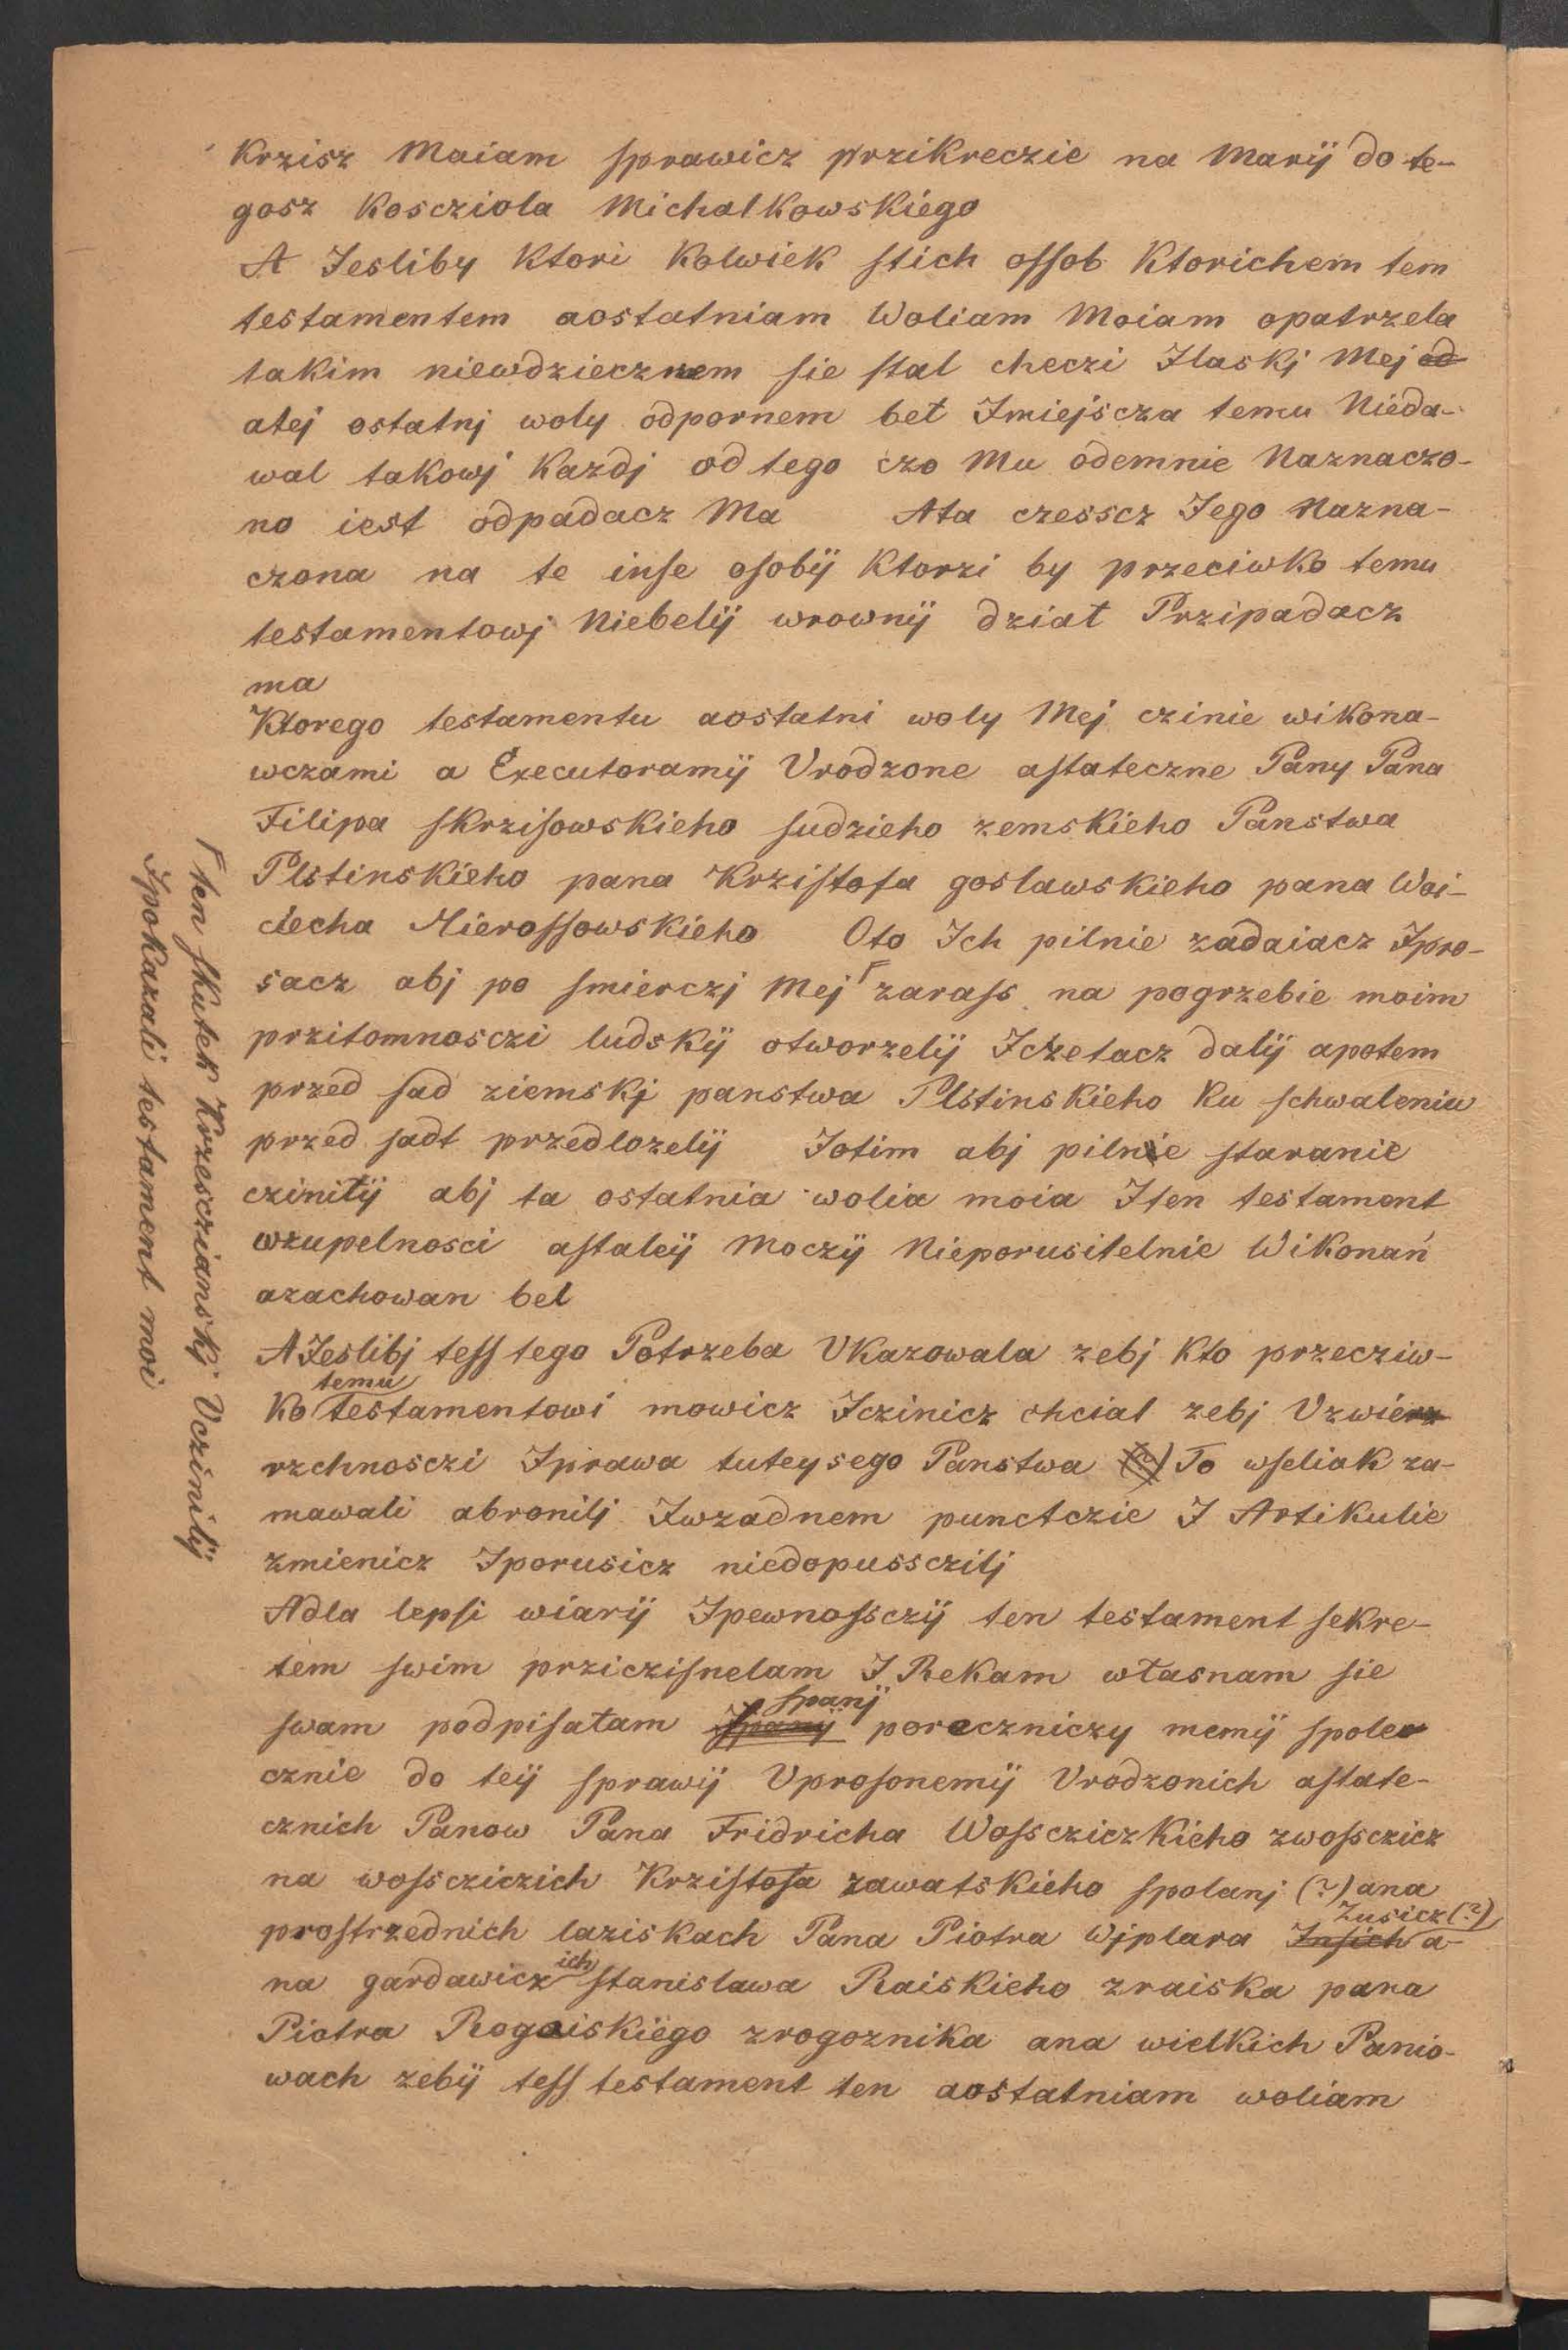 Krzisz Maiam sprawicz przikreczie na Marÿ do te-
gosz Koscziola Michalkowskiego
A Jesliby Ktori Kolwiek stich ossob Ktorichem tem
testamentem aostatniam Woliam Moiam opatrzela
takim niewdziecznem sie stal checzi Jlaskj Mej od
atej ostatnj woly odpornem bet Jmiejscza temu Nieda-
wal takowj Kazdj od tego czo Mu odemnie Naznaczo-
no iest odpadacz Ma Ata czesscz Jego Nazna-
czona na te inse osobÿ Ktorzi by przeciwko temu
testamentowj Niebelÿÿ wrownÿ dziat Przipadacz
ma
Ktorego testamentu aostatni woly Mej czinie wikona-
wczami a Executoramÿ Vrodzone astateczne Pany Pana
Filipa skrzisowskieho sudzieho zemskieho Panstwa
Plstinskieho pana Krzistofa goslawskieho pana Woi-
ciecha Mierossowskieho Oto Jch pilnie zadaiacz Jpro-
sacz abj po smierczj Mej ┌ zarass na pogrzebie moim
przitomnosczi ludskÿ otworzelÿ Jczetacz dalÿ apotem
przed sad ziemskj panstwa Plstinskieho Ku schwaleniu
przed sadt przedlozelÿ Jotim abj pilnie staranie
czinitÿ abj ta ostatnia wolia moia Jten testament
wzupelnosci astaleÿ Moczÿ Nieporusitelnie WiKonań
azachowan bel
AJeslibj tess tego Potrzeba VKazowala zebj Kto przecziw-
temu
Ko testamentowi mowicz Jczinicz chcial zebj Vzwierz
rzchnosczi Jprawa tuteysego Panstwa (?) To wseliak za-
mawali abronilj Jwzadnem punctczie J Artikulie
zmienicz Jporusicz niedopussczilj
Adla lepsi wiarÿ Jpewnossczÿ ten testament sekre-
tem swim prziczisnelam J Rekam własnam sie
spanÿ
swam podpisałam Jpanÿ poreczniczy memÿ spolec
cznie do teÿ sprawÿ VprosonemÿVrodzonich astate-
cznich Panow Pana Fridricha WosscziczKieho zwossczicz
na wosscziczich Krzistofa zawatskieho spolanj (?) ana
Zusicz (?)
prostrzednich laziskach Pana Piotra Wjplara Jnsich a-
ich
na gardawicz stanislawa Raiskieho zraiska pana
Piotra Rogoiskiego zrogoznika ana wielkich Panio-
wach zebÿ tess testament ten aostatniam woliam
┌ ten skutek Krzesczianskj Vczinilÿ
Jpokazali testament moi